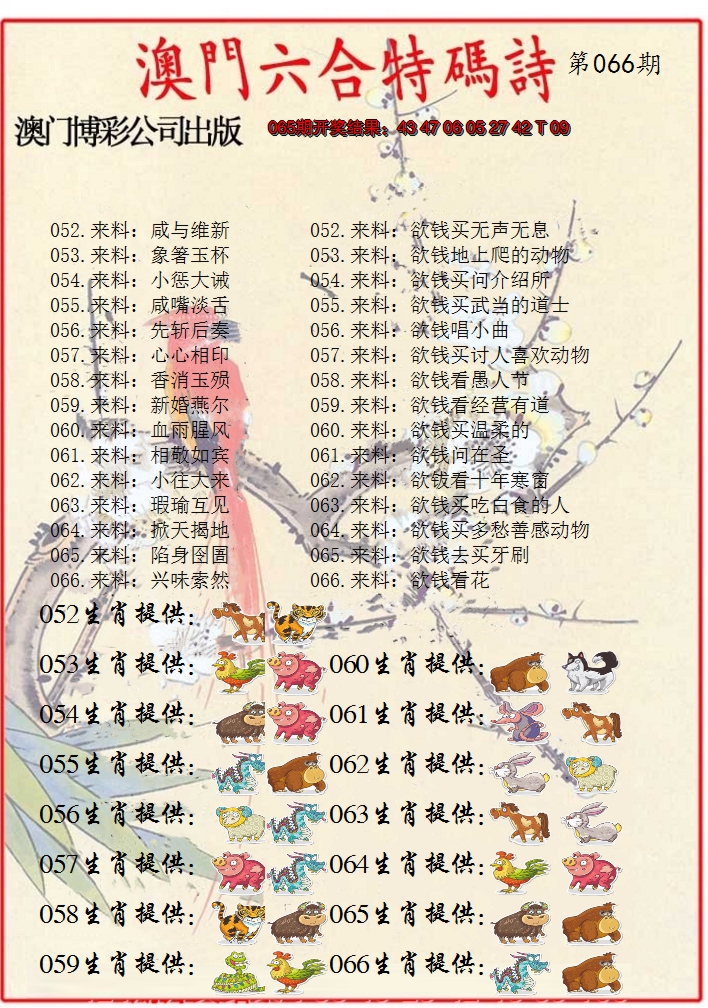 澳門六合特碼詩 第066期
澳门博彩公司出版 065期开奖结果：43 47 06 05 27 42 T 09
052.来料：咸与维新 052.来料：欲钱买无声无息
053.来料：象箸玉杯 053.来料：欲钱地上爬的动物
054.来料：小惩大诫 054.来料：欲钱买何介绍所
055.来料：咸嘴淡舌 055.来料：欲钱买武当的道士
056.来料：先斩后奏 056.来料：欲钱唱小曲
057.来料：心心相印 057.来料：欲钱买讨人喜欢动物
058.来料：香消玉殒 058.来料：欲钱看愚人节
059.来料：新婚燕尔 059.来料：欲钱看经营有道
060.来料：血雨腥风 060.来料：欲钱买温柔的
061.来料：相敬如宾 061.来料：欲钱问在圣
062.来料：小往大来 062.来料：欲钱看十年寒窗
063.来料：瑕瑜互见 063.来料：欲钱买吃白食的人
064.来料：掀天揭地 064.来料：欲钱买多愁善感动物
065.来料：陷身囹圄 065.来料：欲钱去买牙刷
066.来料：兴味索然 066.来料：欲钱看花
052生肖提供：
053生肖提供： 060生肖提供：
054生肖提供： 061生肖提供：
055生肖提供： 062生肖提供：
056生肖提供： 063生肖提供：
057生肖提供： 064生肖提供：
058生肖提供： 065生肖提供：
059生肖提供： 066生肖提供：